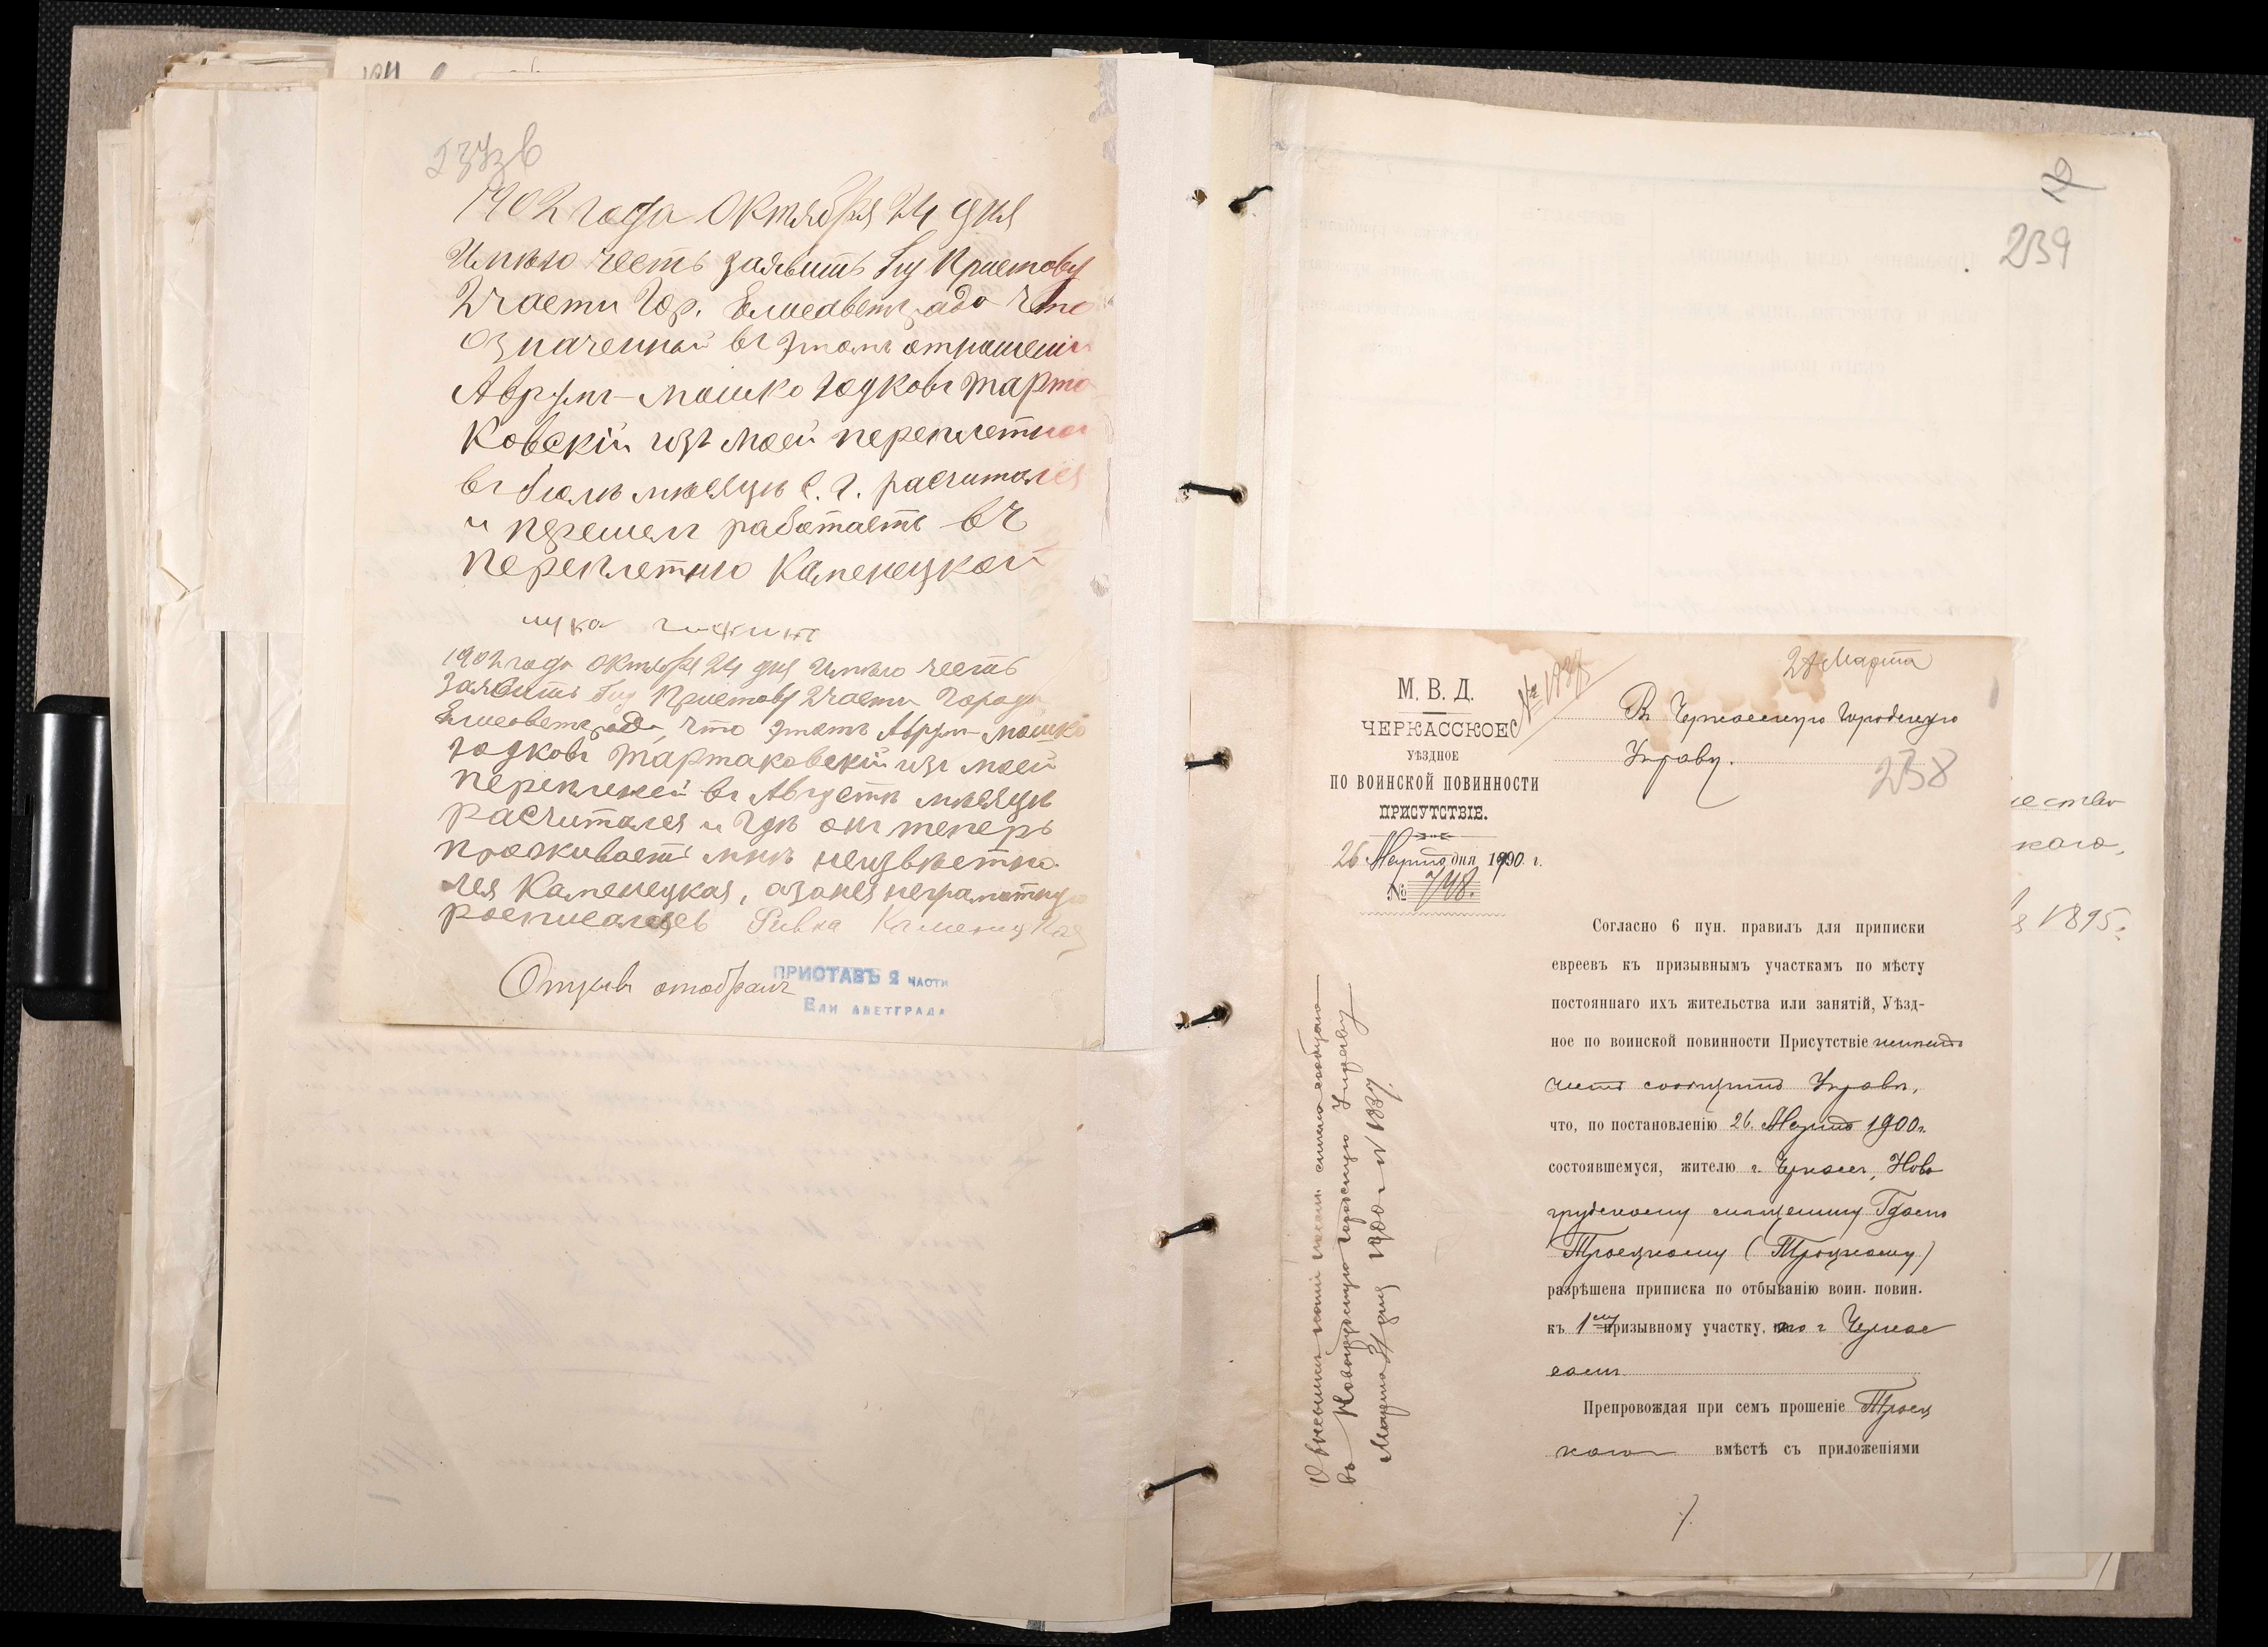 237 зв
1902 года Октября 24 дня
Имѣю честь заявить Гну Приставу
2 части Гор. Елисаветграда что
означенный въ этомъ отношении
Аврумъ-Мошко Юдковъ Тарта
ковскій изъ моей переплетной
въ Июлѣ мѣсяцѣ С. Г. расчитался
и перешелъ работаеть въ
переплетню Каменецкой
1902 года Октября 24 дня Имѣю честь
заявить Гну Приставу 2 части Города
Елисаветграда, что этотъ Аврумъ-Мошко
Юдковъ Тартаковскій изъ моей
въ Августѣ мѣсяцѣ
расчитался и гдѣ онъ теперь
проживаетъ мнѣ неизвѣстно.
Каменецкая, а за нея неграматную
Ривка Каменецкая
отобранъ
ПРИСТАВЪ 2 ЧАСТИ
ЕЛИ АВЕТГРАДА
239
ческаго
каго,
1895.
27 Марта
М. В. Д.
ЧЕРКАССКОЕ
УѢЗДНОЕ
ПО ВОИНСКОЙ ПОВИННОСТИ
ПРИСУТСТВІЕ.
26 Марта дня 1900 г.
№ 748.
Въ Черкасскую Городскую
Управу.
238
Согласно 6 пун. правилъ для приписки
евреевъ къ призывнымъ участкамъ по мѣсту
постояннаго ихъ жительства или занятій, Уѣзд-
ное по воинской повинности Присутствіе имѣетъ
честь сообщить Управѣ,
что, по постановленію 26 Марта 1900 г.
состоявшемуся, жителю г. Черкассъ, Ново
грудскому мѣщанину
Троецкому (Троцкому)
разрѣшена приписка по отбыванію воин. повин.
къ 1му призывному участку, г. Черкас
самъ
Препровождая при семъ прошеніе Троец
каго вмѣстѣ съ приложеніями
./.
въ Новогрудскую городскую Управу
Марта 31 дня 1900 г. № 1337.